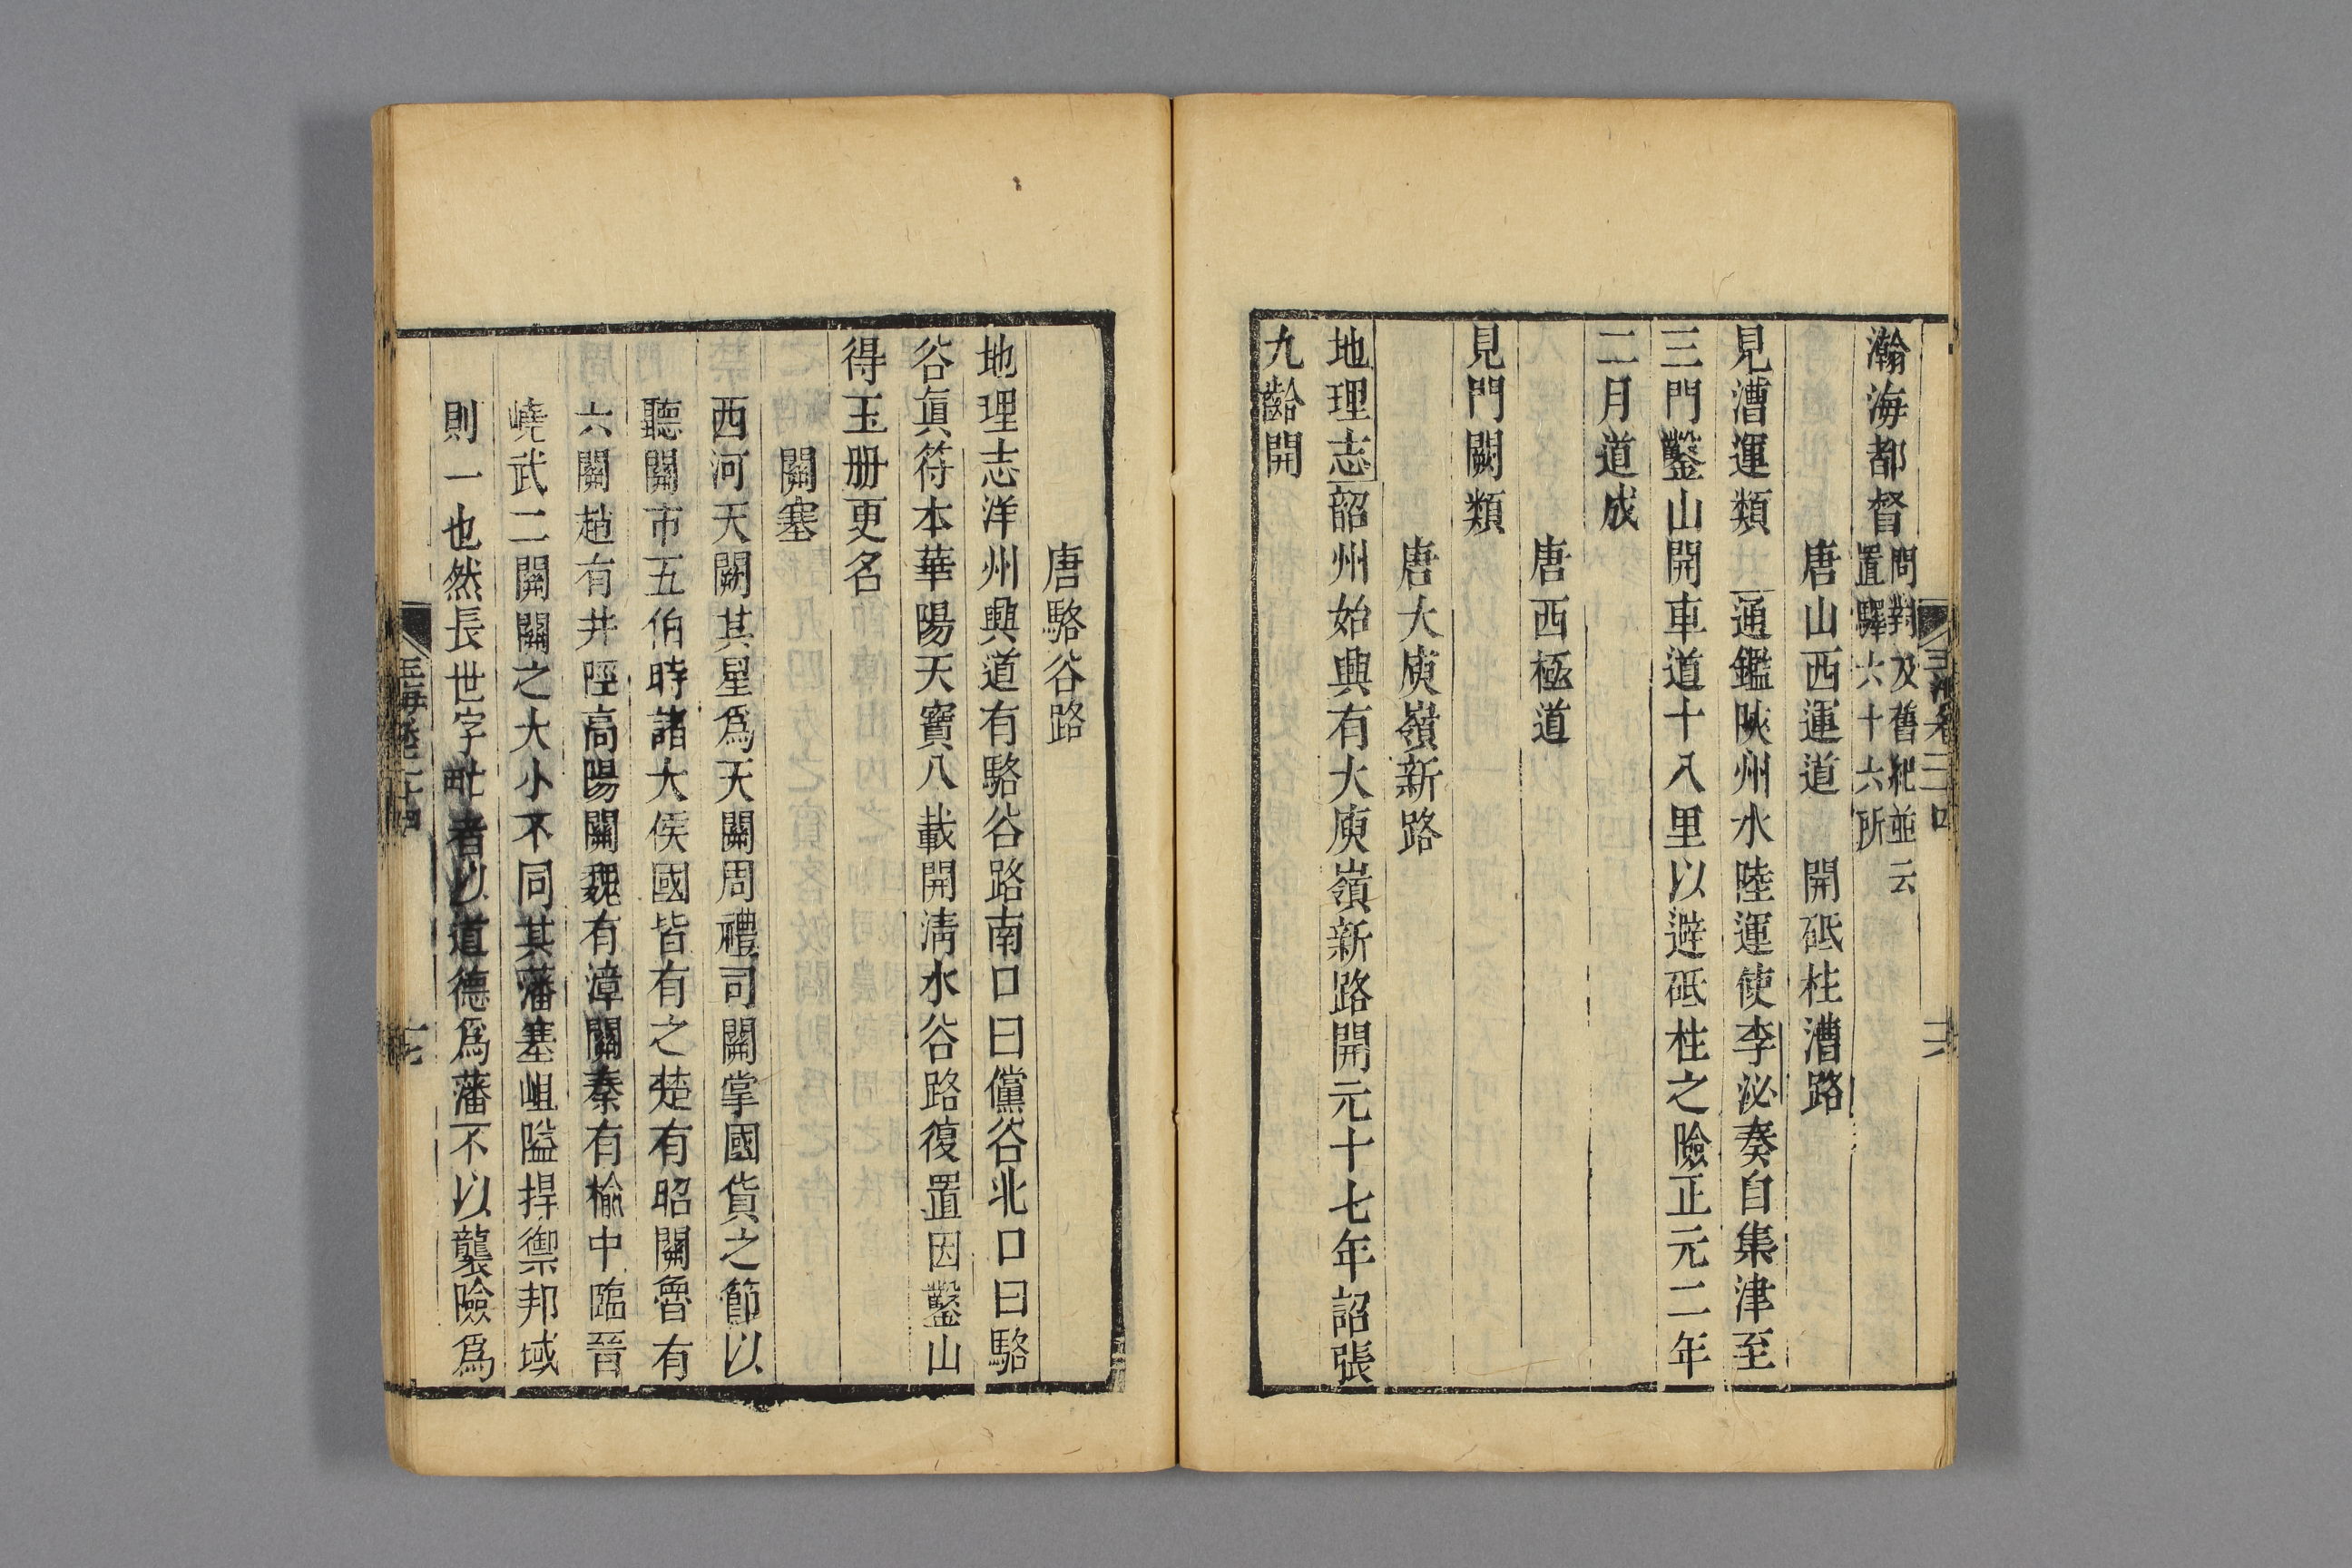 瀚海都督問對及舊紀並云置驛六十六所
唐山西運道 開砥柱漕路
見漕運類 通鑑陝州水陸運使李泌奏自集津至
三門鑿山開車道十八里以避砥柱之險正元二年
二月道成
唐西極道
見門闕類
唐大庾嶺新路
地理志韶州始興有大庾嶺新路開元十七年詔張
九齡開
唐駱谷路
地理志洋州興道有駱谷路南口曰儻谷北口曰駱
谷眞符本華陽天寶八載開淸水谷路復置因鑿山
得玉册更名
關塞
西河天闕其星爲天關周禮司關掌國貨之節以
聽關市五伯時諸大侯國皆有之楚有昭關魯有
六關趙有井陘高陽關魏有漳關秦有榆中臨晉
嶢武二關關之大小不同其藩塞岨隘捍禦邦域
則一也然長世字甿者以道德爲藩不以襲險爲
玉海卷二十四
七